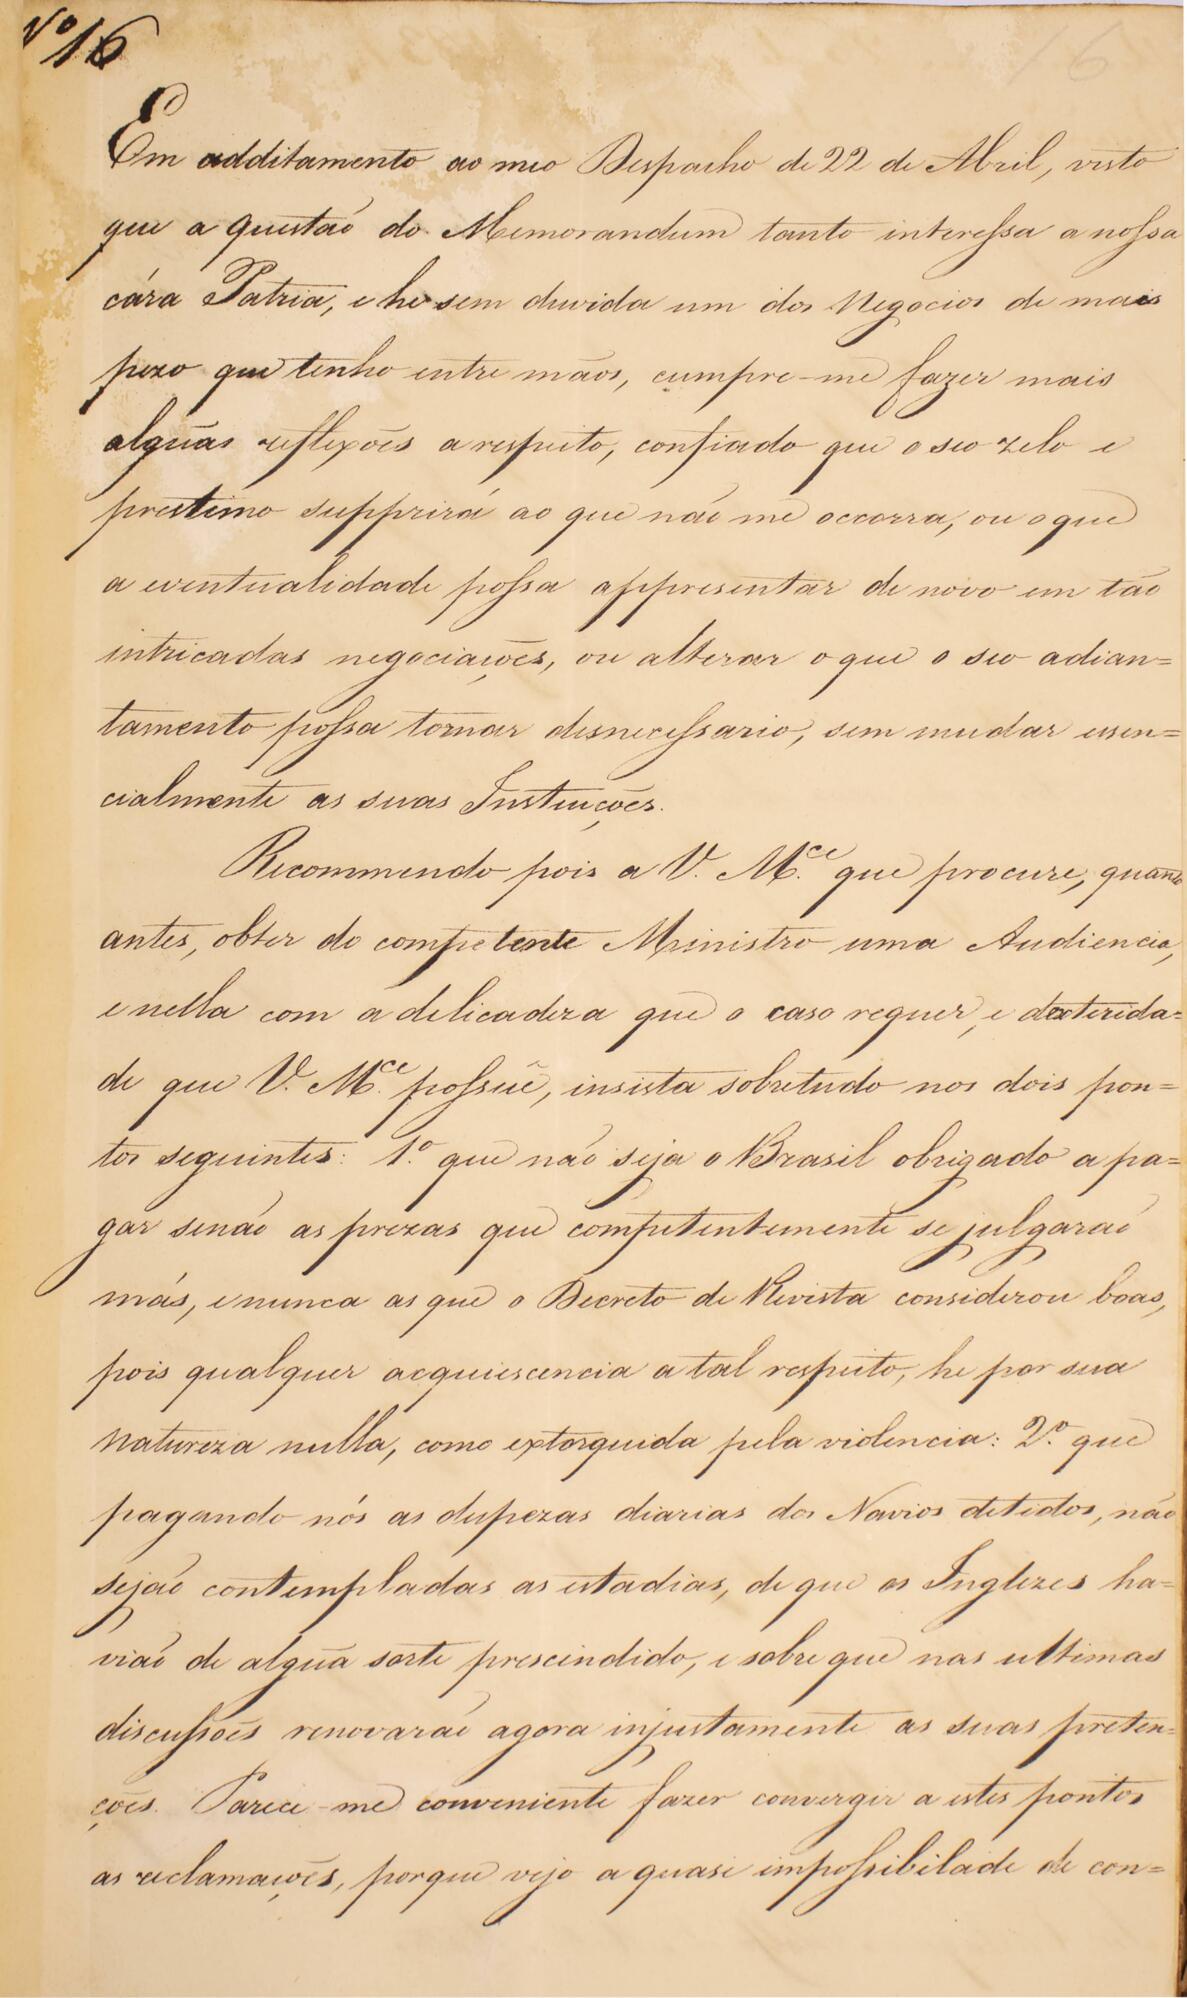 Nº 16
16
Em additamento ao meo Despacho de 22 de Abril, visto
que a questaõ do Memorandum tanto interessa a nossa
cára Patria, e he sem duvida um dos Negocios de mais
pezo que tenho entre mãos, cumpre-me fazer mais
algũas reflexões a respeito, confiado que o seo zelo e
prestimo supprirá ao que naõ me occorra, ou o que
a eventualidade possa appresentar de novo em tão
intricadas negociações, ou alterar o que o seo adian=
tamento possa tornar desnecessario, sem mudar essen=
cialmente as suas Instrucções.
Recommendo pois a V. M.ce que procure, quanto
antes, obter do competente Ministro uma Audiencia,
e nella com a delicadeza que o caso requer, e dexterida=
de que V. M.ce possuê, insista sobretudo nos dois pon=
tos seguintes: 1.º que naõ seja o Brasil obrigado a pa=
gar senaõ as prezas que competentemente se julgaraõ
más, e nunca as que o Decreto de Revista considerou boas,
pois qualquer acquiescencia a tal respeito, he por sua
natureza nulla, como extorquida pela violencia: 2.º que
pagando nós as despezas diarias dos Navios detidos, não
sejaõ contempladas as estadias, de que os Inglezes ha=
viaõ de algũa sorte prescindido, e sobre que nas ultimas
discussões renovaraõ agora injustamente as suas preten=
ções. Parece-me conveniente fazer convergir a estes pontos
as reclamações, porque vejo a quasi impossibilade de con=